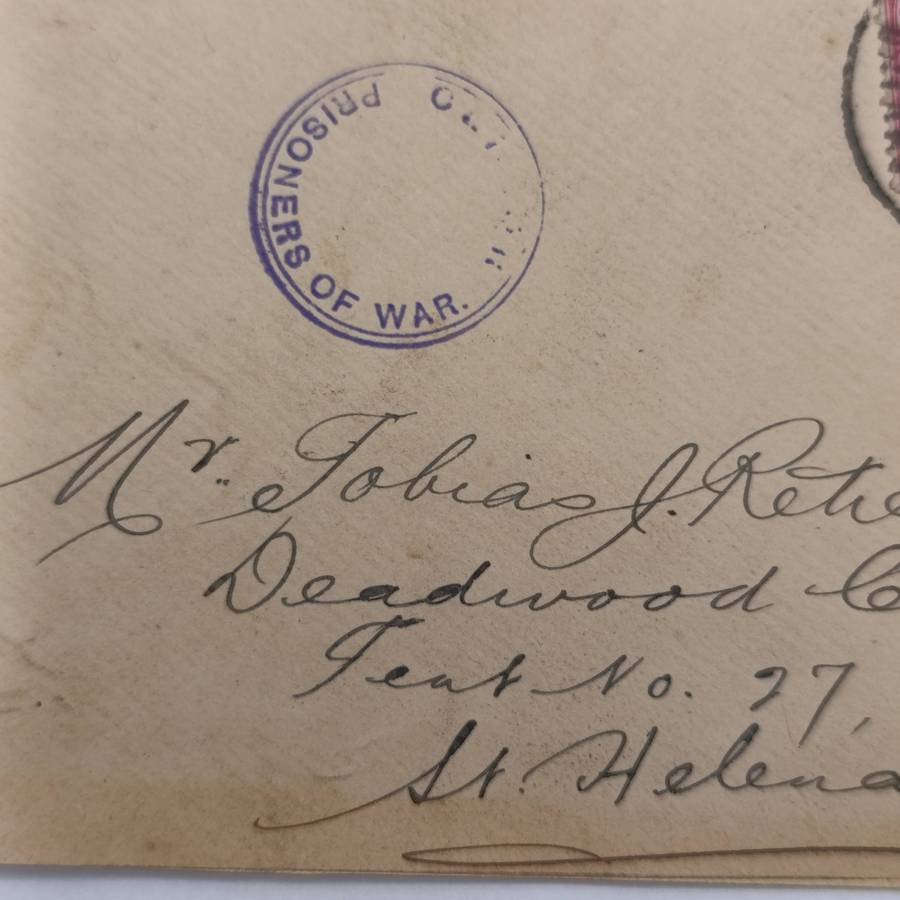 PRISONERS OF WAR.
Mr. Tobias J. Retie
Deadwood C
Tent No. 27,
St. Helena